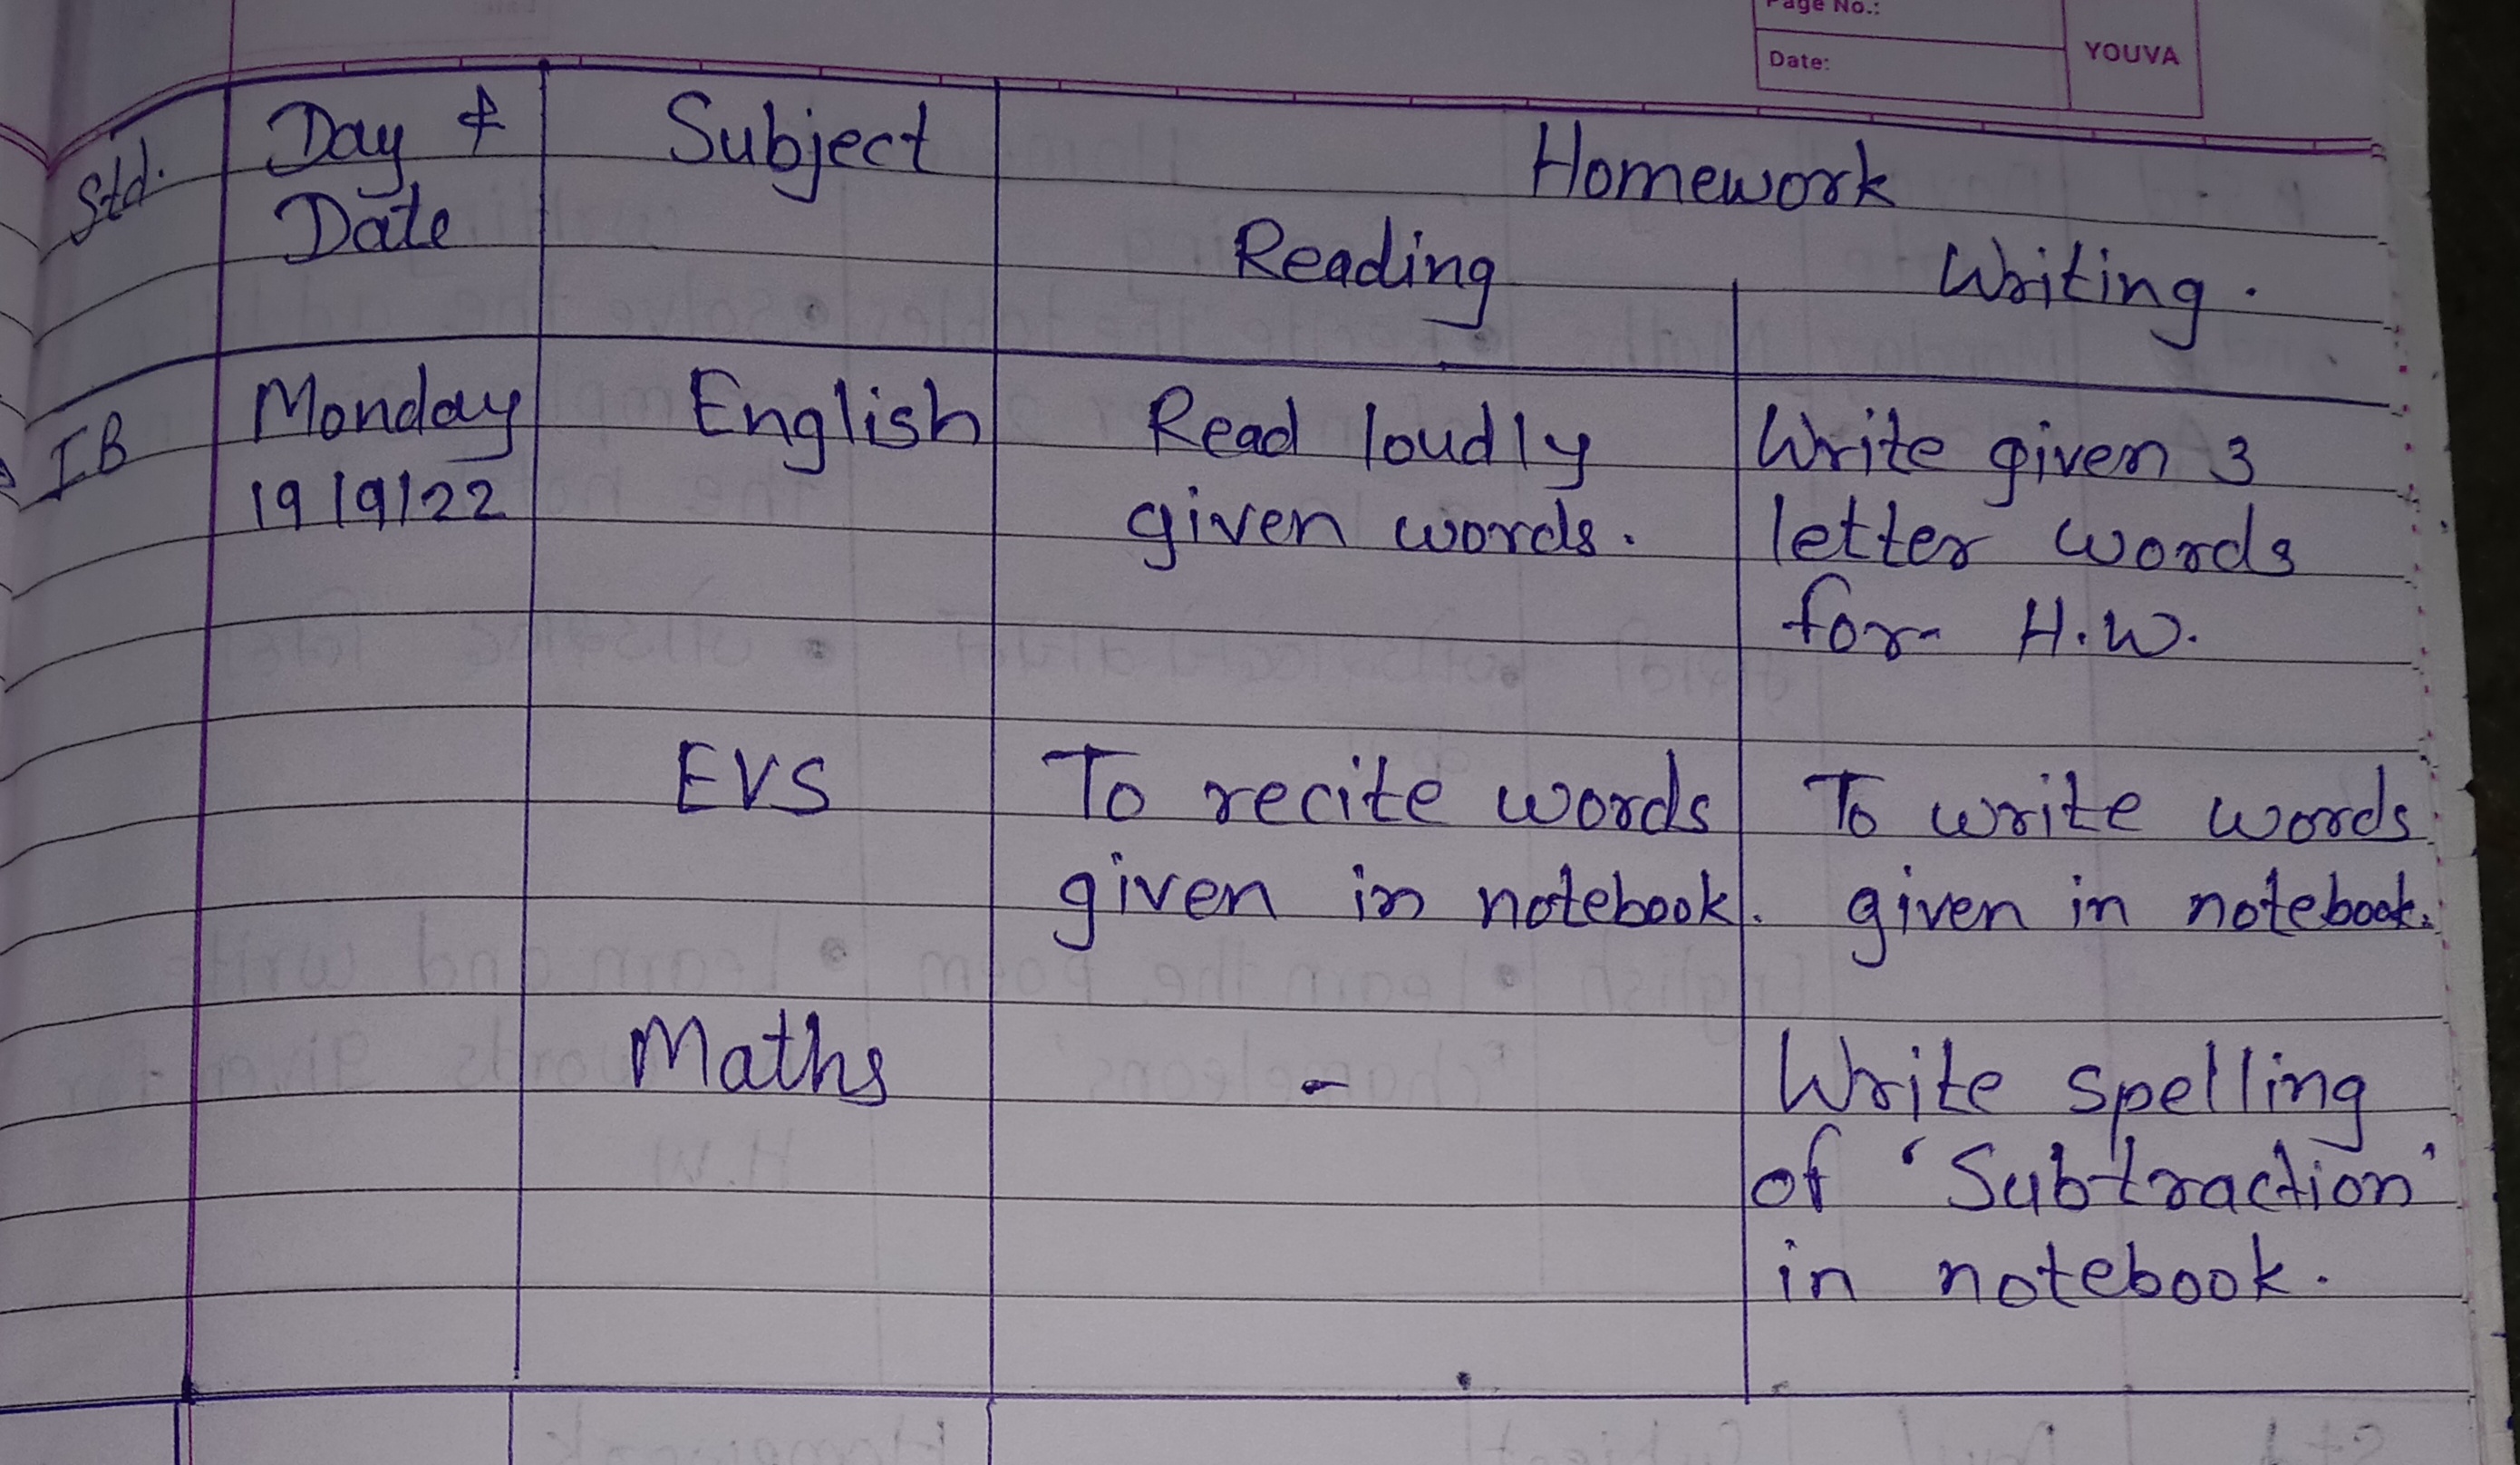 Page No.:
Date:
YOUVA
Std.
Day &
Date
Subject
Homework
Reading
Writing.
IB
Monday
19/9/22
English
Read loudly
given words.
Write given 3
letter words
for H.W.
EVS
To recite words
given in notebook.
To write words
given in notebook.
Maths
-
Write spelling
of 'Subtraction'
in notebook.